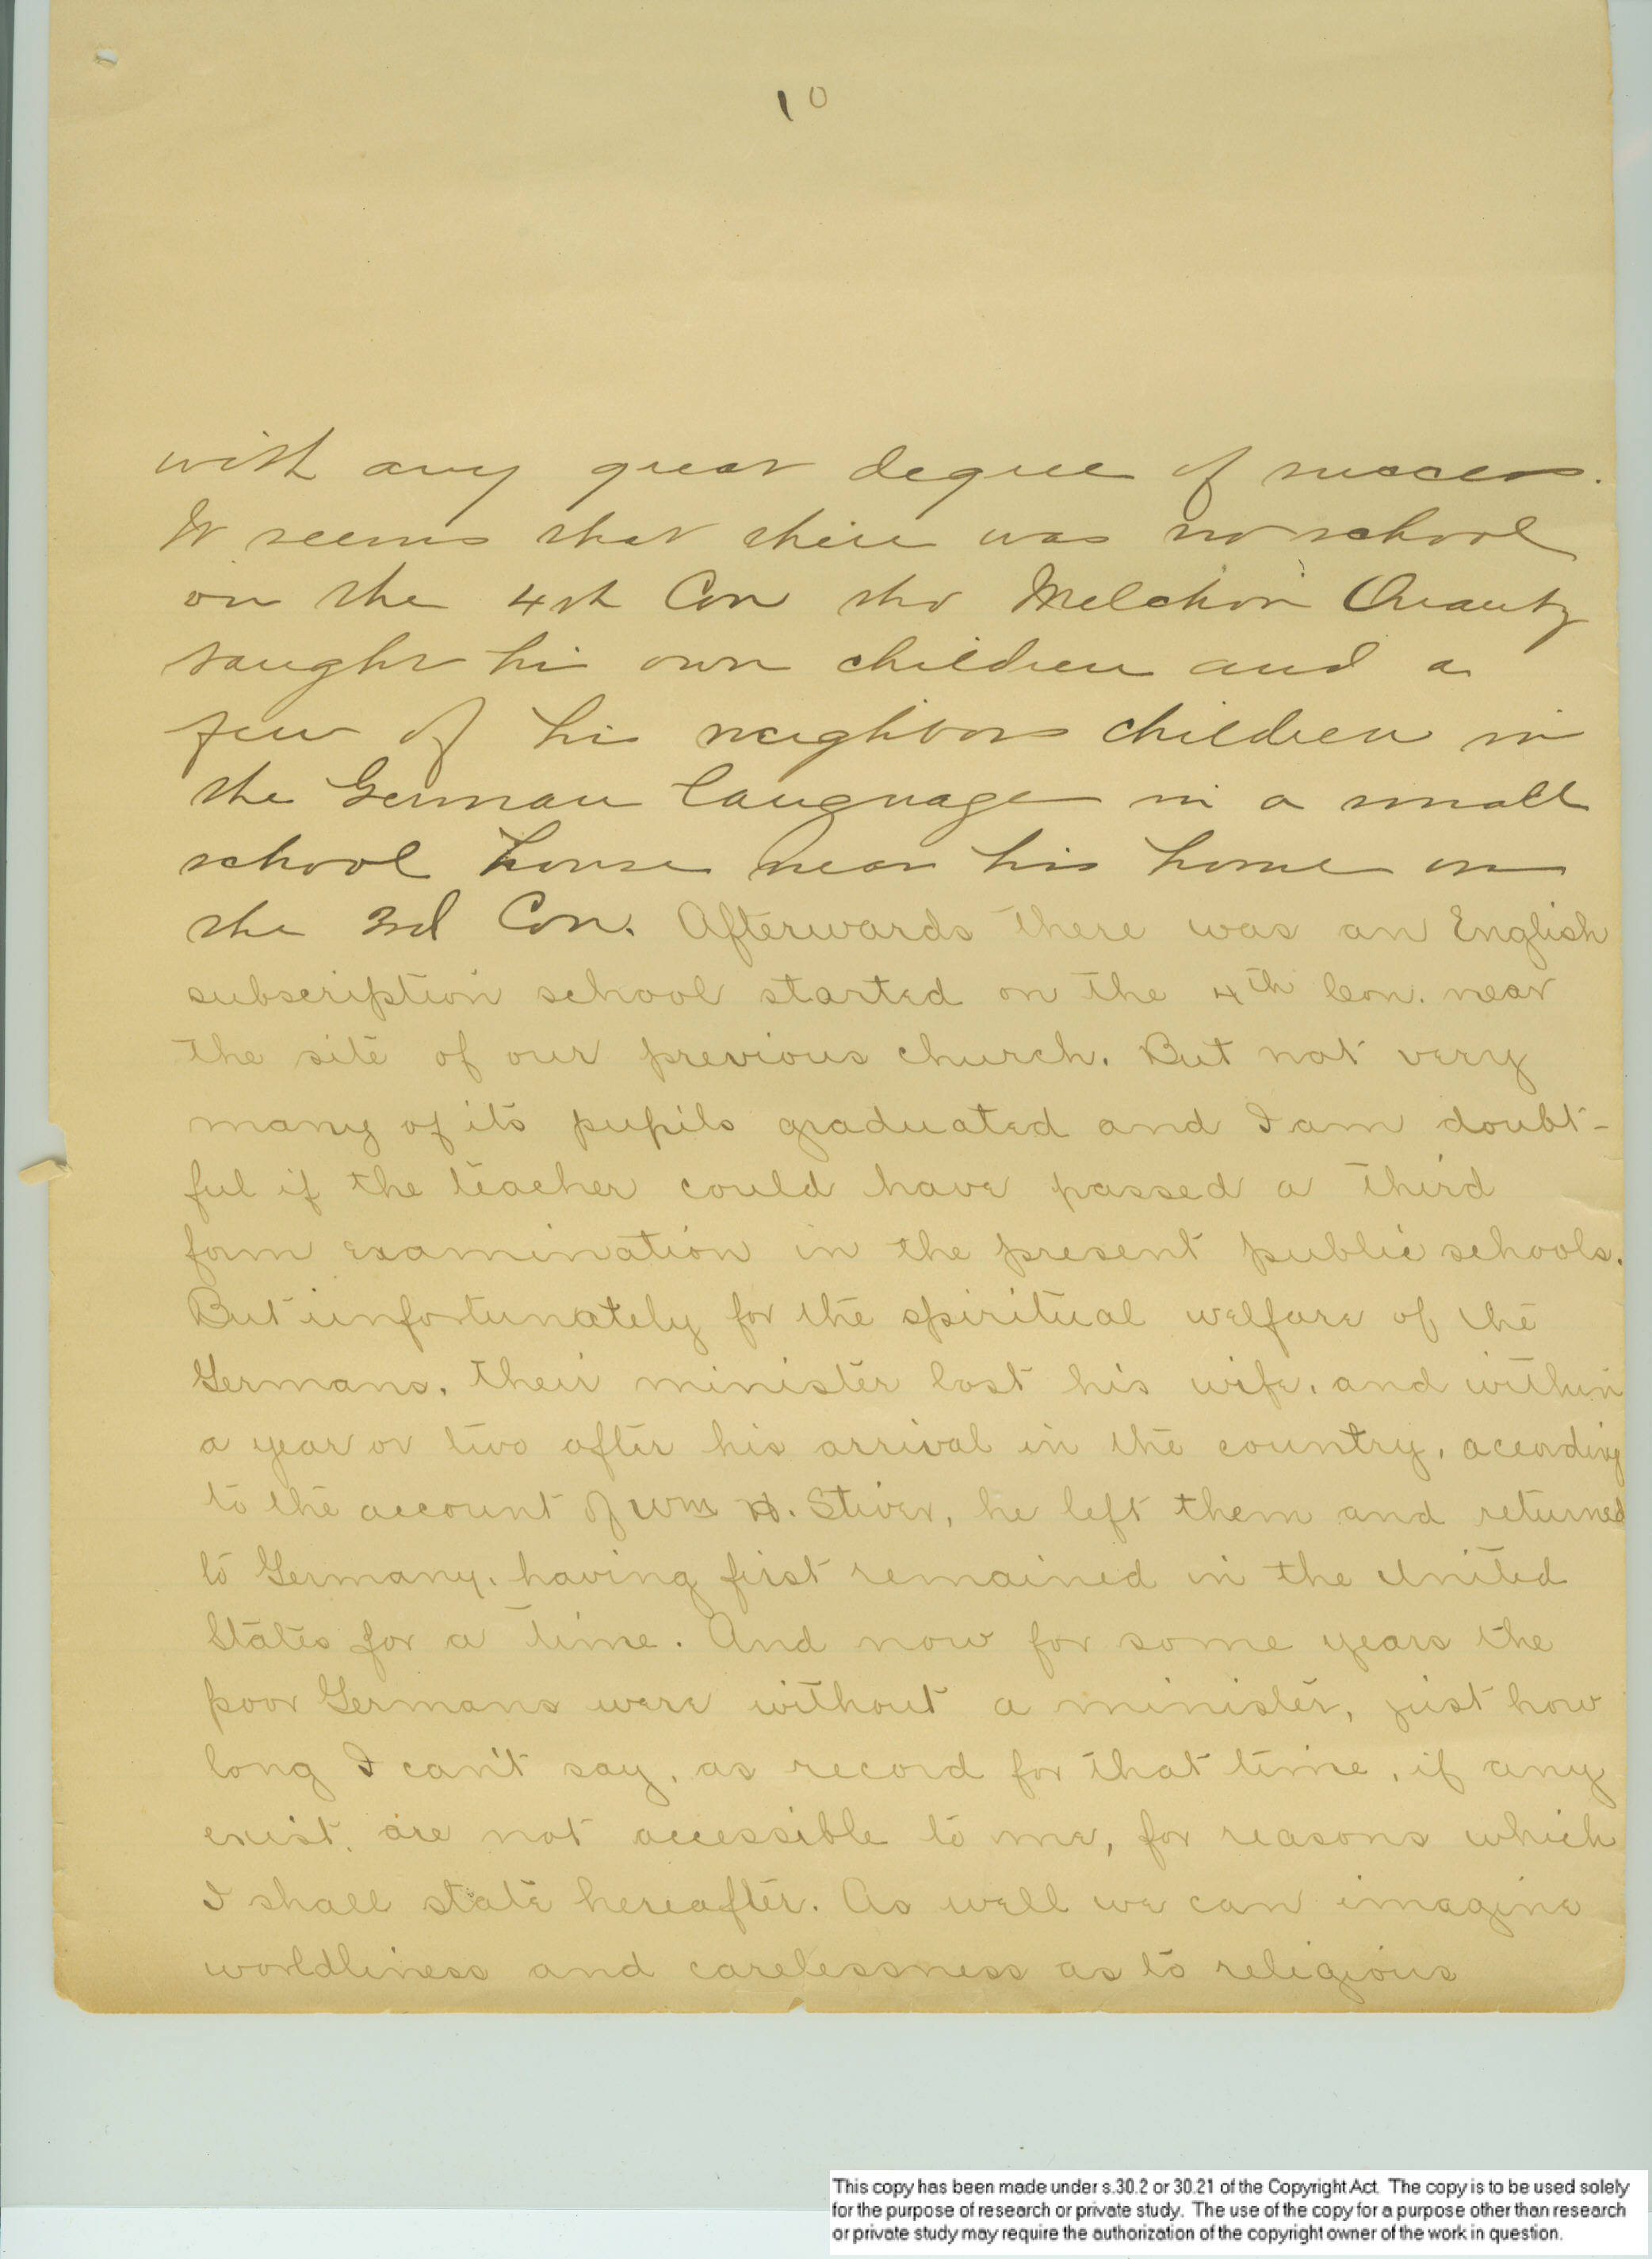 10
with any great degree of success.
It seems that there was no school
on the 4th Con tho Melchior Quantz
taught his own children and a
few of his neighbors children in
the German language in a small
school house near his home on
the 3rd Con. Afterwards there was an English
subscription school started on the 4th Con. near
the site of our previous church. But not very
many of its pupils graduated and I am doubt-
ful if the teacher could have passed a third
form examination in the present public schools.
But unfortunately for the spiritual welfare of the
Germans, their minister lost his wife, and within
a year or two after his arrival in the country, acording
to the account of Wm H. Stiver, he left them and returned
to Germany, having first remained in the United
States for a time. And now for some years the
poor Germans were without a minister, just how
long I can't say, as record for that time, if any
exist, are not accessible to me, for reasons which
I shall state hereafter. As well we can imagine
worldliness and carelessness as to religious
This copy has been made under s.30.2 or 30.21 of the Copyright Act. The copy is to be used solely
for the purpose of research or private study. The use of the copy for a purpose other than research
or private study may require the authorization of the copyright owner of the work in question.